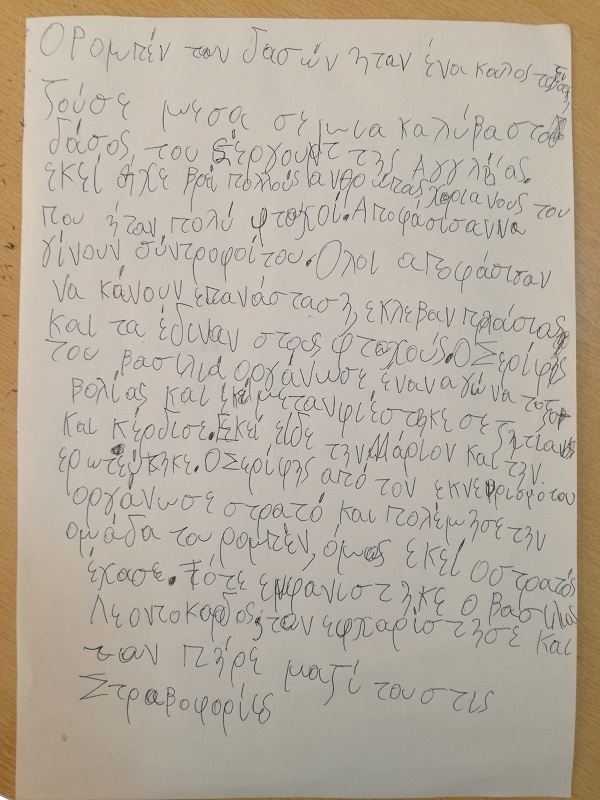 Ο Ρομπέν τον δασών ήταν ένα καλος
ζούσε μωσα σε μια καλύβα στο
δάσος του Σέργουντ της Αγγλίας.
εκεί είχε βρι πολλούς ανθρώπους χοριανους του
που ήταν πολύ φτοχοί. Αποφάσισαν να
γίνουν σύντροφοί του. Όλοι αποφάσισαν
να κάνουν επανάσταση, εκλεβαν πλούσιους
και τα έδιναν στους φτοχούς. Ο Σερίφης
του βασιλιά οργάνωσε έναν αγώνα
βολίας και εκεί μετανφιέστηκε σε ζητιανο
και κέρδισε. Εκεί είδε την Μάριον και την
ερωτεύτηκε. Ο Σερίφης από τον εκνευρισμό του
οργάνωσε στρατό και πολέμησε την
ομάδα του ρομπέν, όμως εκεί ο στρατός
έχασε. Τότε εμφανιστηκε ο Βασιλιας
Λεοντοκαρδος, τον εφχαρίστησε και
τον πήρε μαζί του στις
Στραβοφορίες